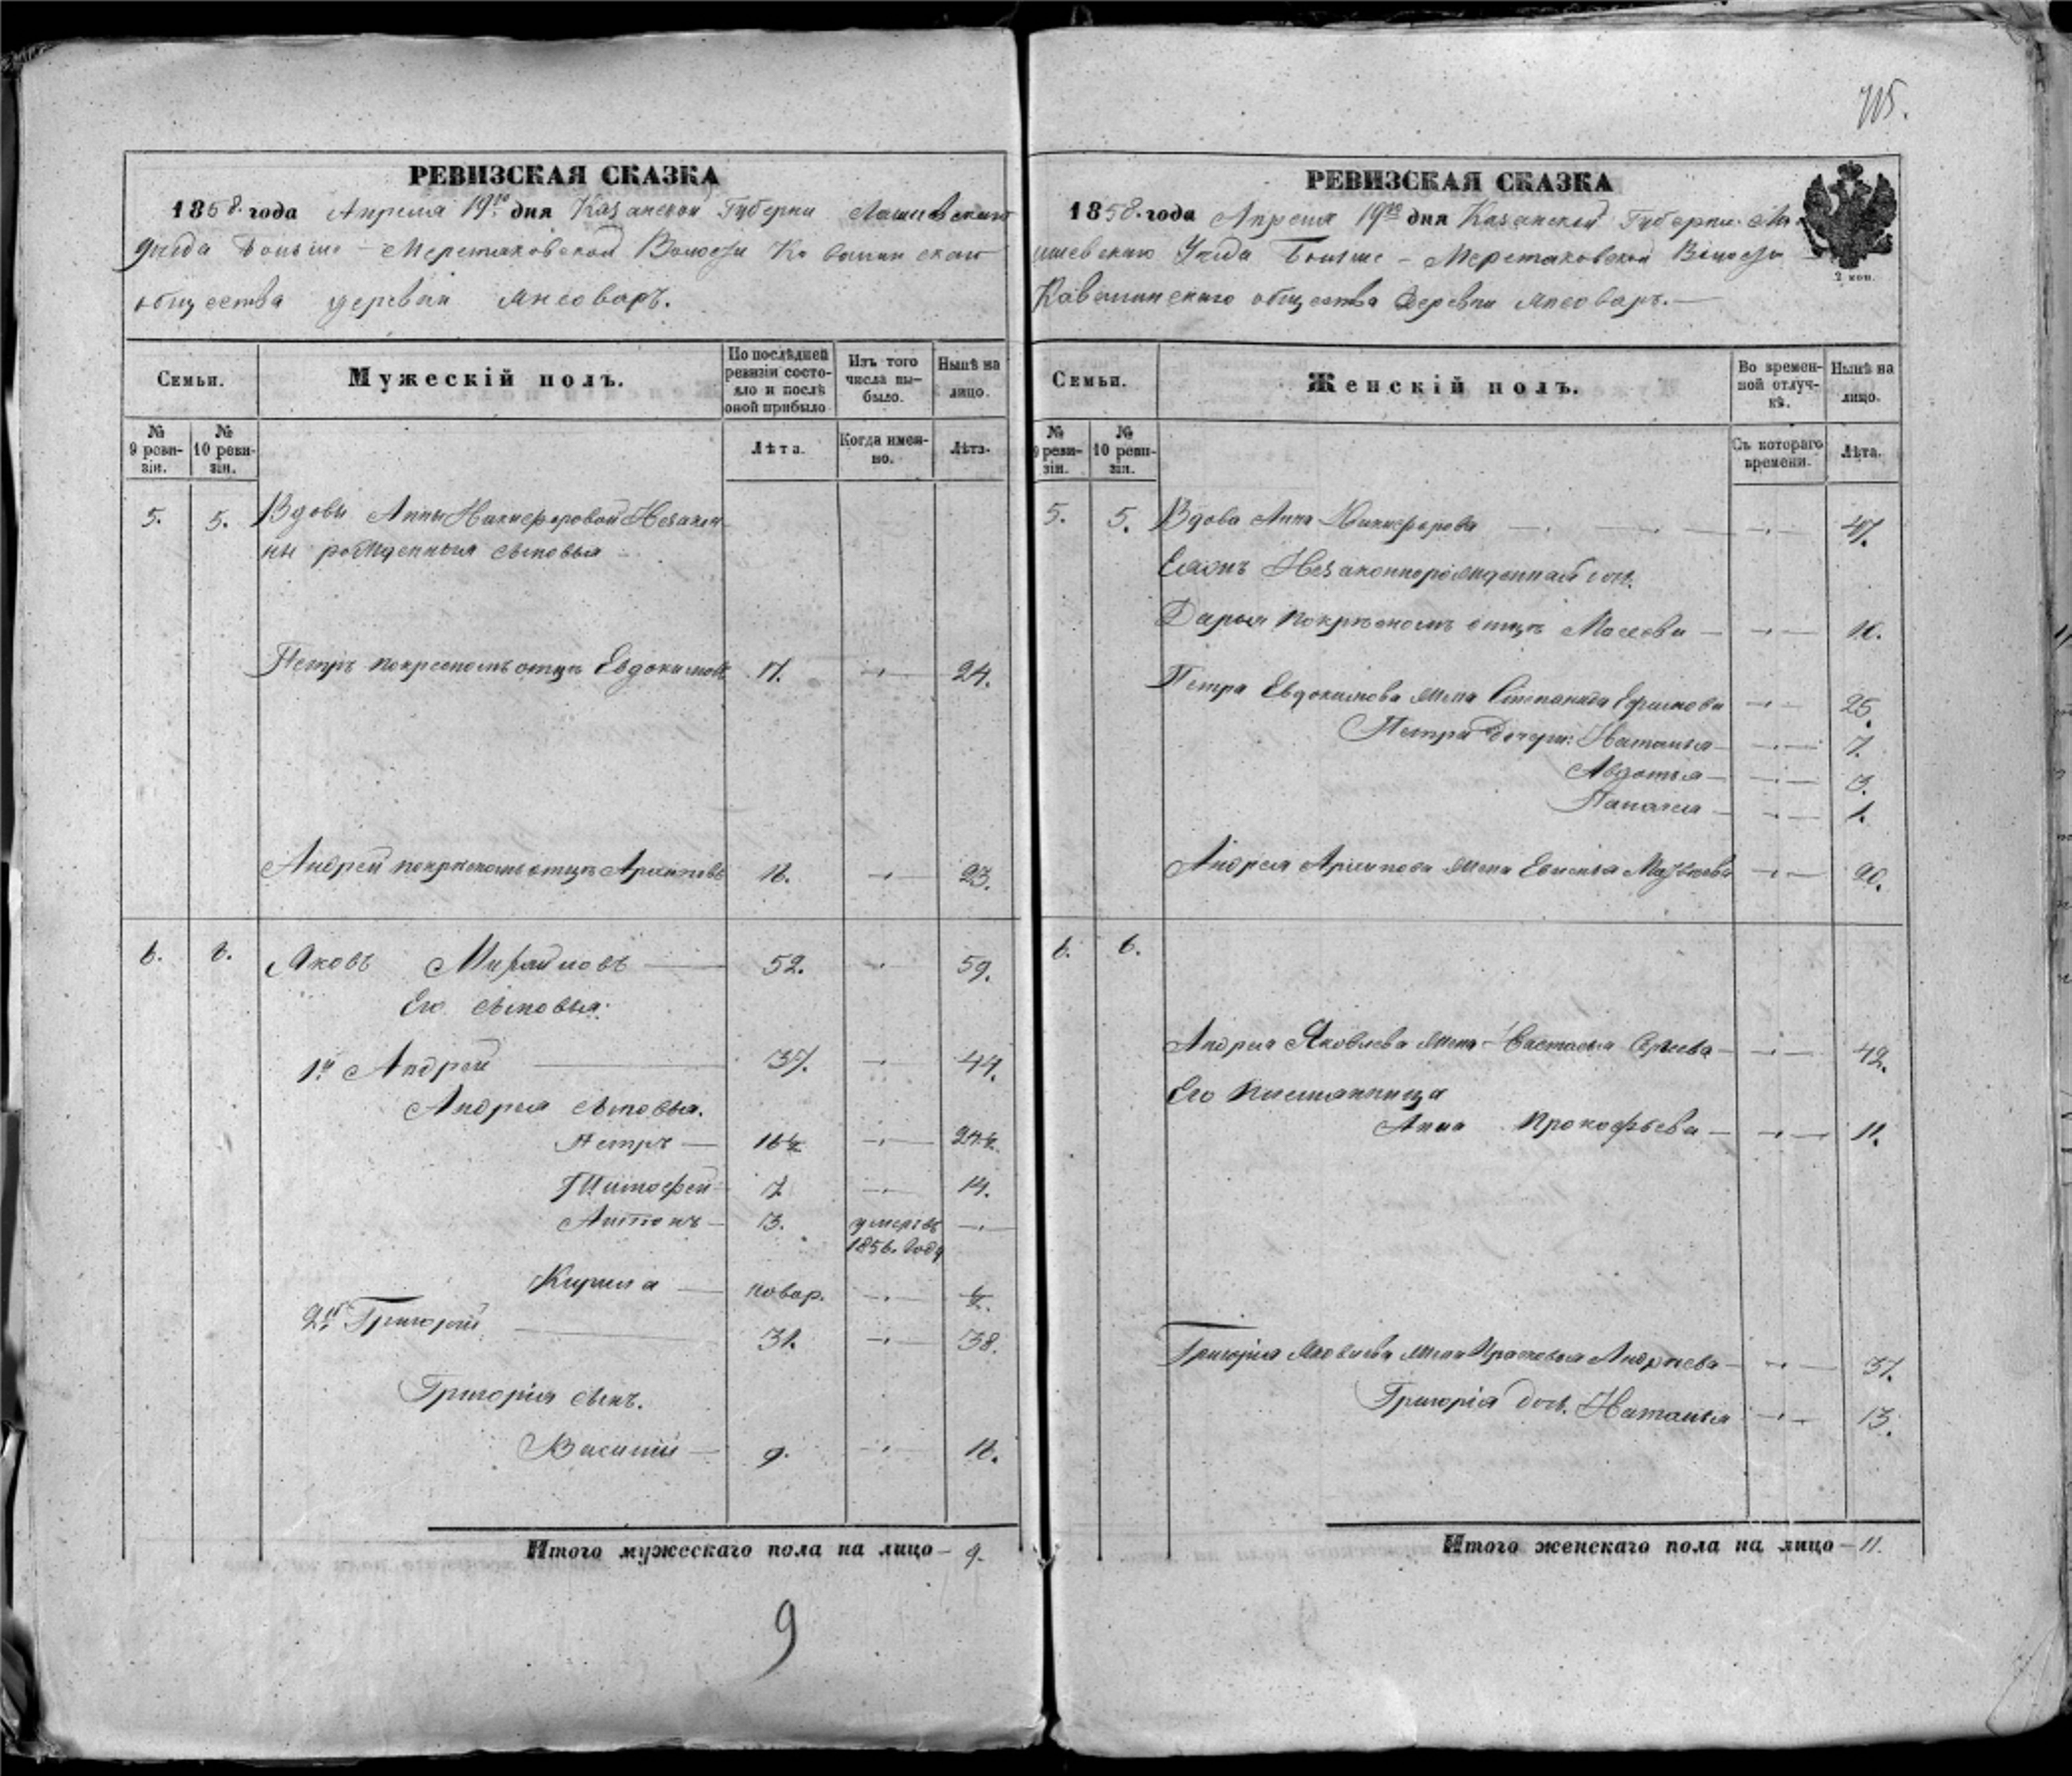 715.
РЕВИЗСКАЯ СКАЗКА
1858. года Апреля 19го дня Казанской Губерни Лаишевскаго
Уезда Больше-Меретяковской Волости Ковалинскаго
общества деревни Янсоваръ.
Семьи.
Мужескій полъ.
По послѣдней ревизіи состояло и послѣ оной прибыло
Изъ того числа выбыло.
Нынѣ на лицо.
№ 9 ревизіи.
№ 10 ревизіи.
Лѣта.
Когда именно.
Лѣта.
5. 5. Вдовы Анны Никифоровой Незакон
ны рожденныя сыновья
Петръ покрестномъ отцѣ Евдокимовъ 17. 24.
Андрей покрестномъ отцѣ Архиповъ 16. 23.
6. 6. Яковъ Михайловъ 52. 59.
Его сыновья:
1й Андрей 37. 44.
Андрея сыновья.
Петръ 16½ 24½
Тимофей 7 14.
Антонъ 3. умеръ въ
1856. году
Кирила новор. ½.
2й Григорій 31. 38.
Григорія сынъ.
Василій 9. 16.
Итого мужескаго пола на лицо 9.
9
РЕВИЗСКАЯ СКАЗКА
1858. года Апреля 19го дня Казанской Губерни Ла
ишевскаго Уезда Больше-Меретяковской Волости
Ковалинскаго общества деревни Янсоваръ.
2 коп.
Семьи.
Женскій полъ.
Во временной отлучкѣ.
Нынѣ на лицо.
№ 9 ревизіи.
№ 10 ревизіи.
Съ котораго времени.
Лѣта.
5. 5. Вдова Анна Никифорова 47.
Незаконнорожденная доч.
Дарья покрестномъ отцѣ Моисеева 10.
Петра Евдокимова жена Степанида Ефимова 25.
Петра дочери: Наталья 7.
Авдотья 3.
Палагея 1.
Андрея Архипова жена Матвеева 20.
6. 6.
Андрея Яковлева жена Настасья Сергеева 42.
Его племянница
Анна Прокофьева 11.
Григорія Яковлева жена Прасковья Андреева 37.
Григорія доч. Наталья 13.
Итого женскаго пола на лицо 11.